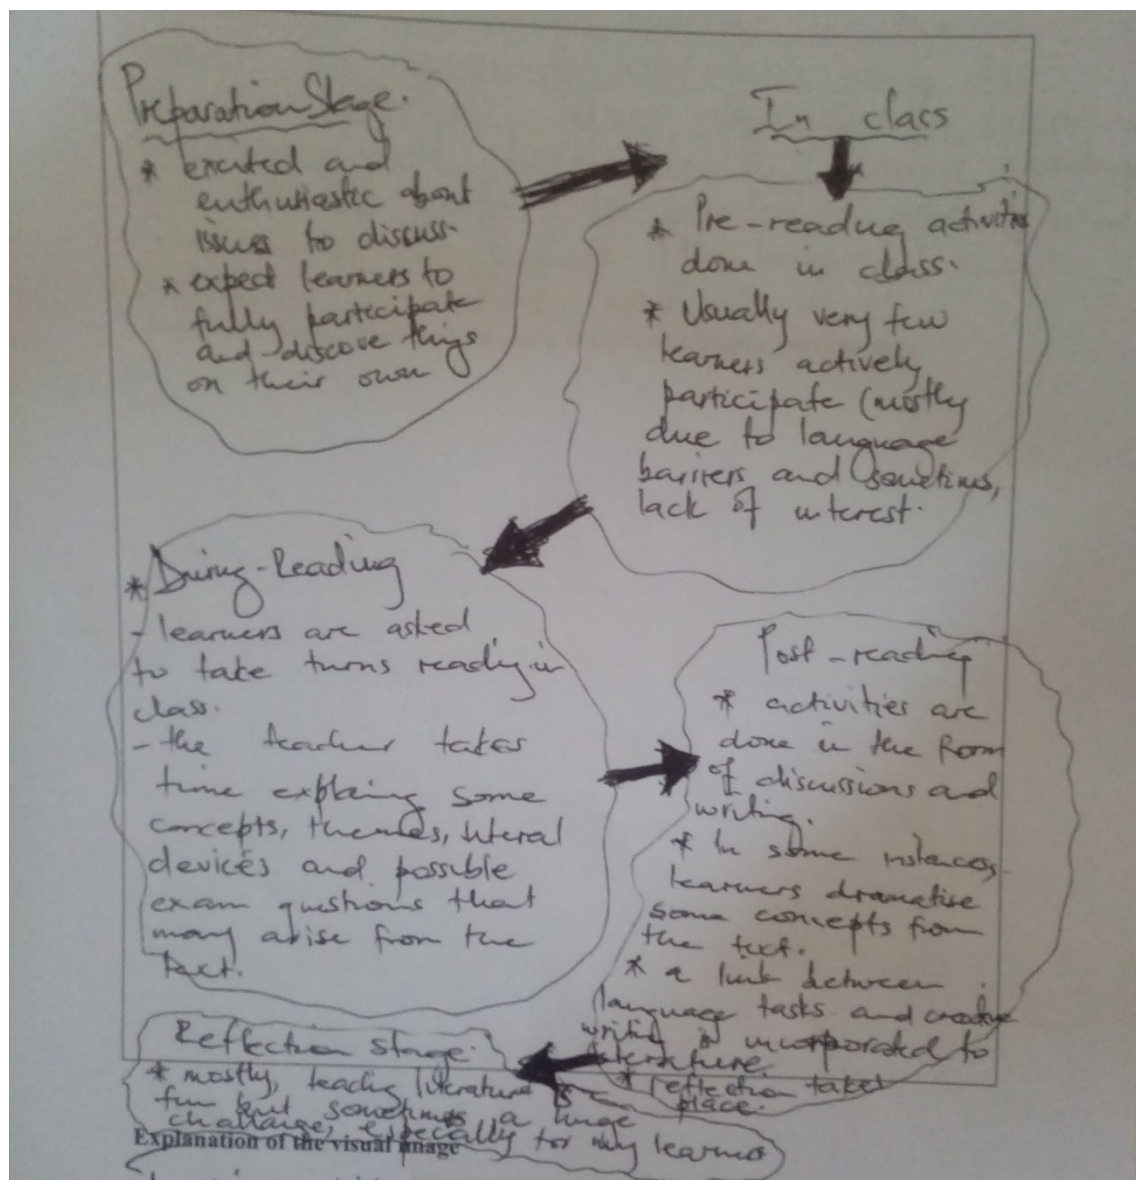 Preparation Stage.
* excited and
enthusiastic about
issues to discuss.
* expect learners to
fully participate
and discove things
on their own
In class
* Pre-reading activities
done in class.
* Usually very few
learners actively
participate (mostly
due to language
barriers and sometimes,
lack of interest.
* During-Reading
- learners are asked
to take turns reading in
class.
- the teacher takes
time explaing some
concepts, themes, literal
devices and possible
exam questions that
may arise from the
text.
Post-reading
* activities are
done in the form
of discussions and
writing.
* In some instances
learners dramatise
some concepts from
the text.
* a link between
language tasks and creative
writing is incorporated to
literature
* reflection takes
place.
Reflection stage.
* mostly, teaching literature is
fun but sometimes a huge
challenge, especially for my learners
Explanation of the visual image